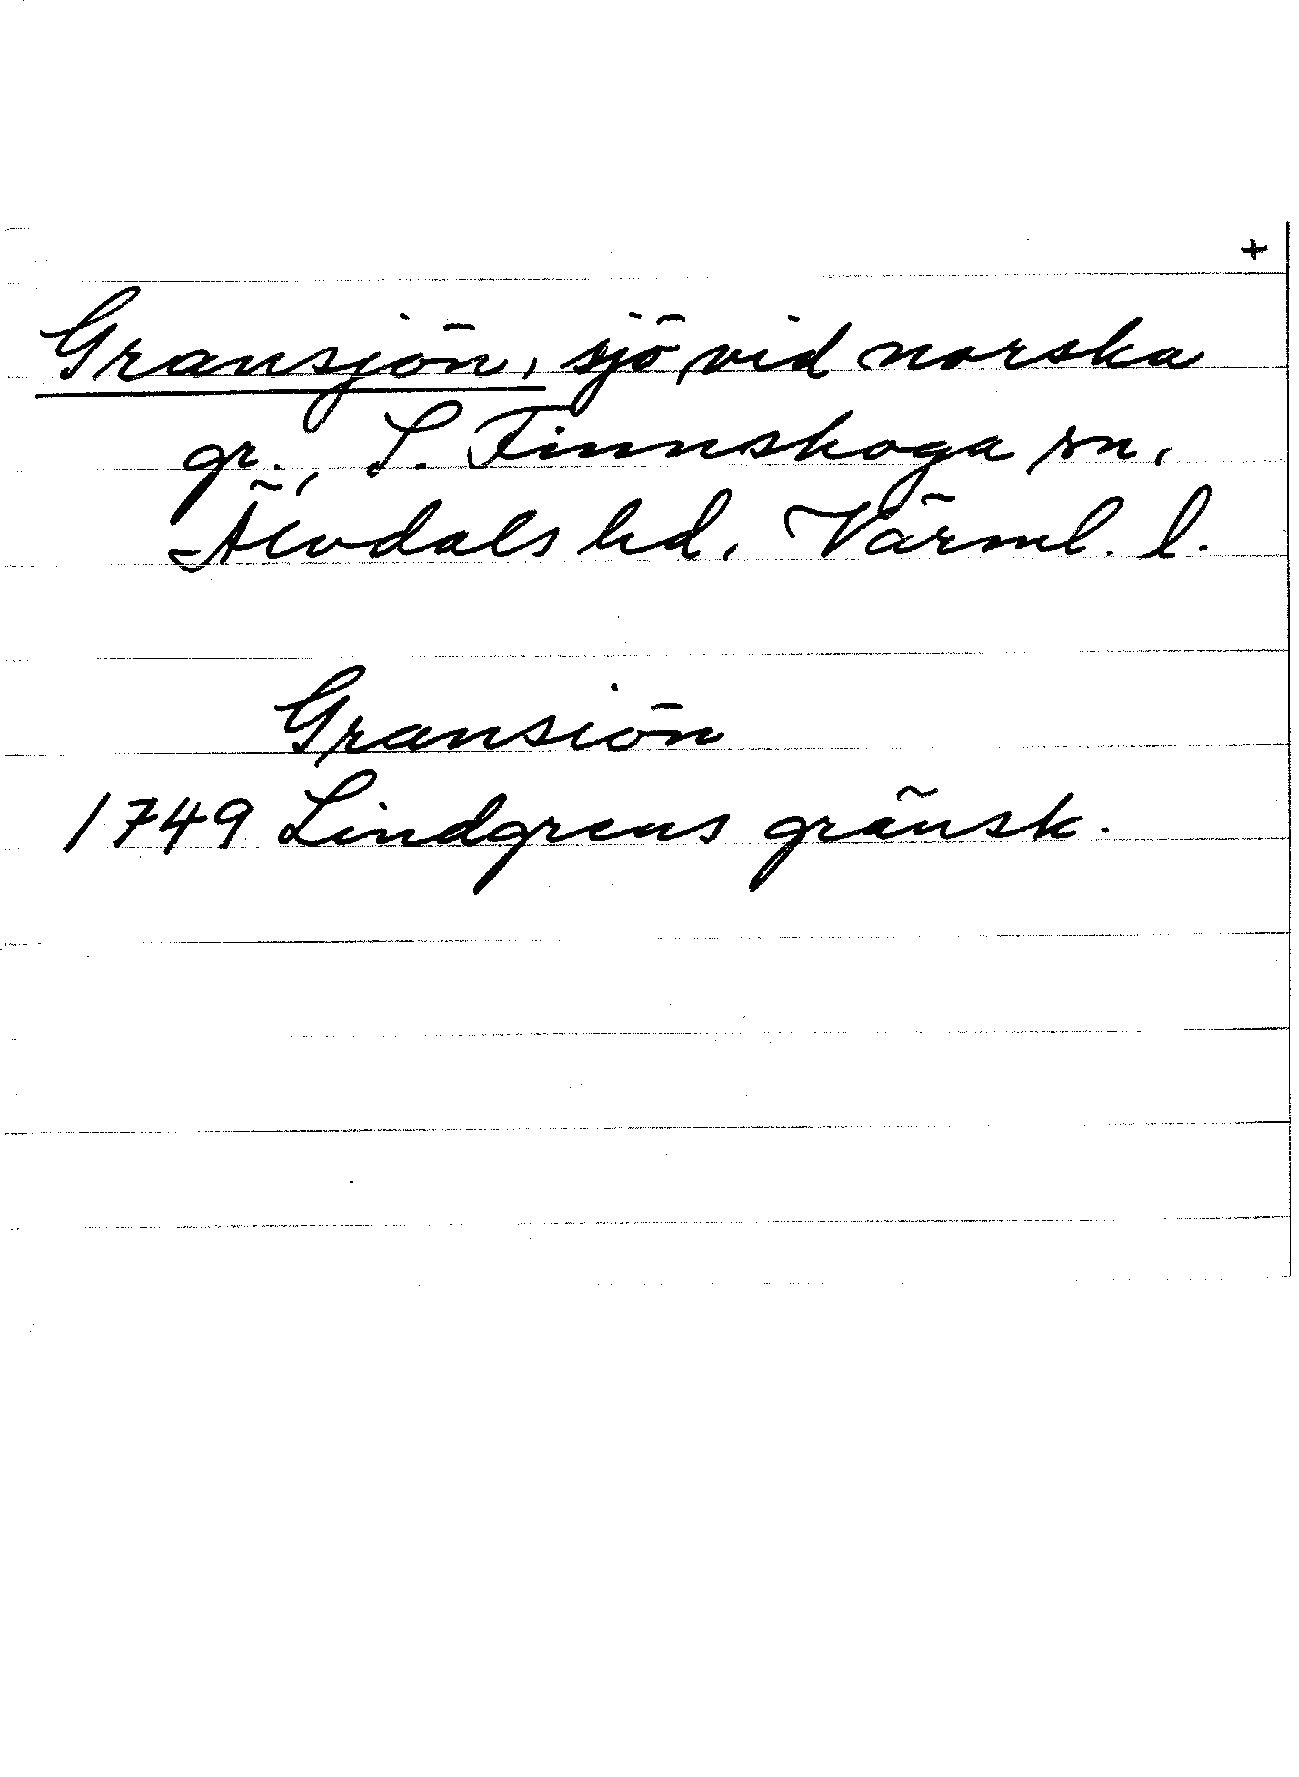 +
Gransjön, sjö vid norska
gr., S. Finnskoga sn,
Älvdals hd, Värml. l.
Gransiön
1749 Lindgrens gränsk.